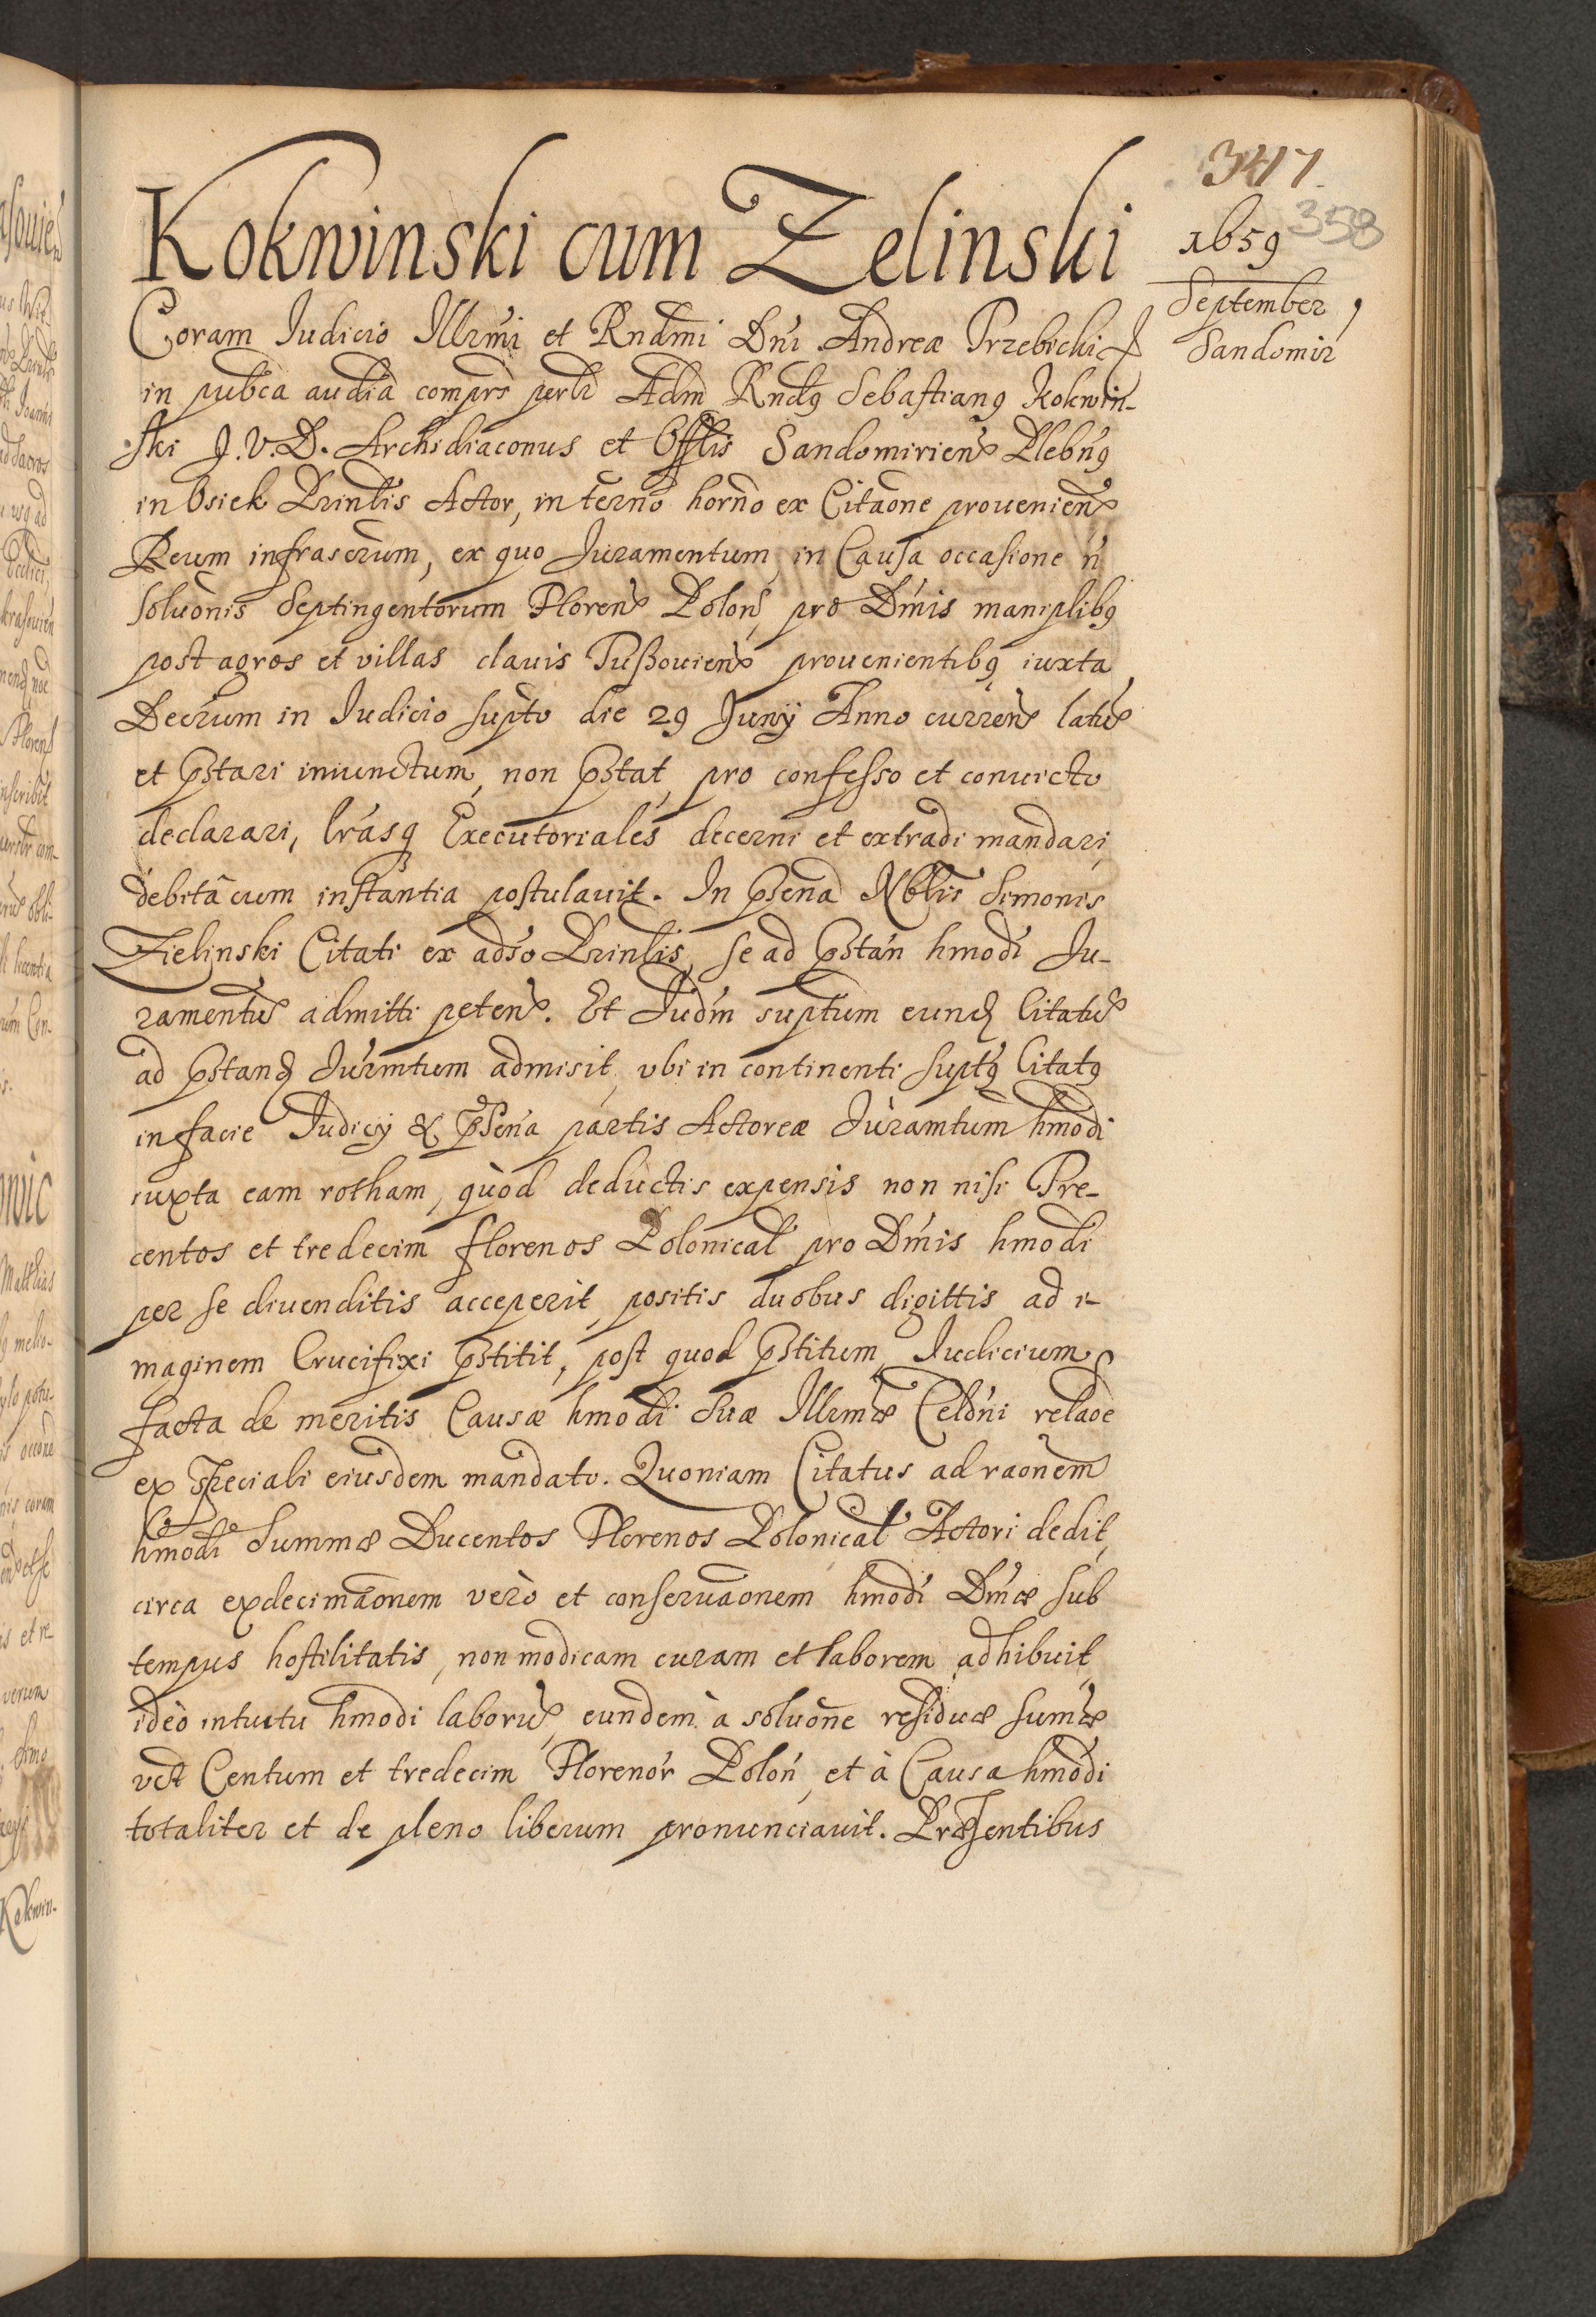 347
358
1659
September
Sandomir
Kokwinski cum Zelinski
Coram Iudicio Illrmi et Rndmi Dni Andreæ Trzebicki
in pubca audia comprs perlr Adm Rndq Sebastianq Kokwin-
ski J. V. D. Archidiaconus et Offlis Sandomirien Plebnq
in Osiek Prinlis Actor, in terno horno ex Citaone prouenien
Reum infrascrum, ex quo Juramentum, in Causa occasione n
soluonis Septingentorum Floren Polon, pro Dmis maniplibq
post agros et villas clauis Tußouien prouenientibq iuxta
Decrum in Iudicio supto die 29 Junÿ Anno curren latu
et pstari iniunctum, non pstat, pro confesso et conuicto
declarari, lrasq Executoriales decerni et extradi mandari,
debita cum instantia postulauit. In psena Nblis Simonis
Zielinski Citati ex adso Prinlis, se ad pstan hmodi Ju-
ramentu admitti peten. Et Judm suptum eund Citatu
ad pstand Jurmtum admisit, vbi in continenti suptq Citatq
in facie Iudicÿ & psena partis Actoreæ Juramtum hmodi
iuxta eam rotham, quòd deductis expensis non nisi Tre-
centos et tredecim florenos Polonical pro Dmis hmodi
per se diuenditis acceperit, positis duobus digittis ad i-
maginem Crucifixi pstitit, post quod pstitum Iudicium
facta de meritis Causæ hmodi Suæ Illrmæ Celdni relaoe
ex speciali eiusdem mandato. Quoniam Citatus ad raonem
hmodi Summæ Ducentos Florenos Polonical Actori dedit,
circa expdecimaonem verò et conseruaonem hmodi Dmæ sub
tempus hostilitatis, non modicam curam et laborem adhibuit,
ideò intuitu hmodi laboru, eundem à soluone residuæ sumæ
vct Centum et tredecim Florenor Polon, et à Causa hmodi
totaliter et de pleno liberum pronunciauit. Præsentibus